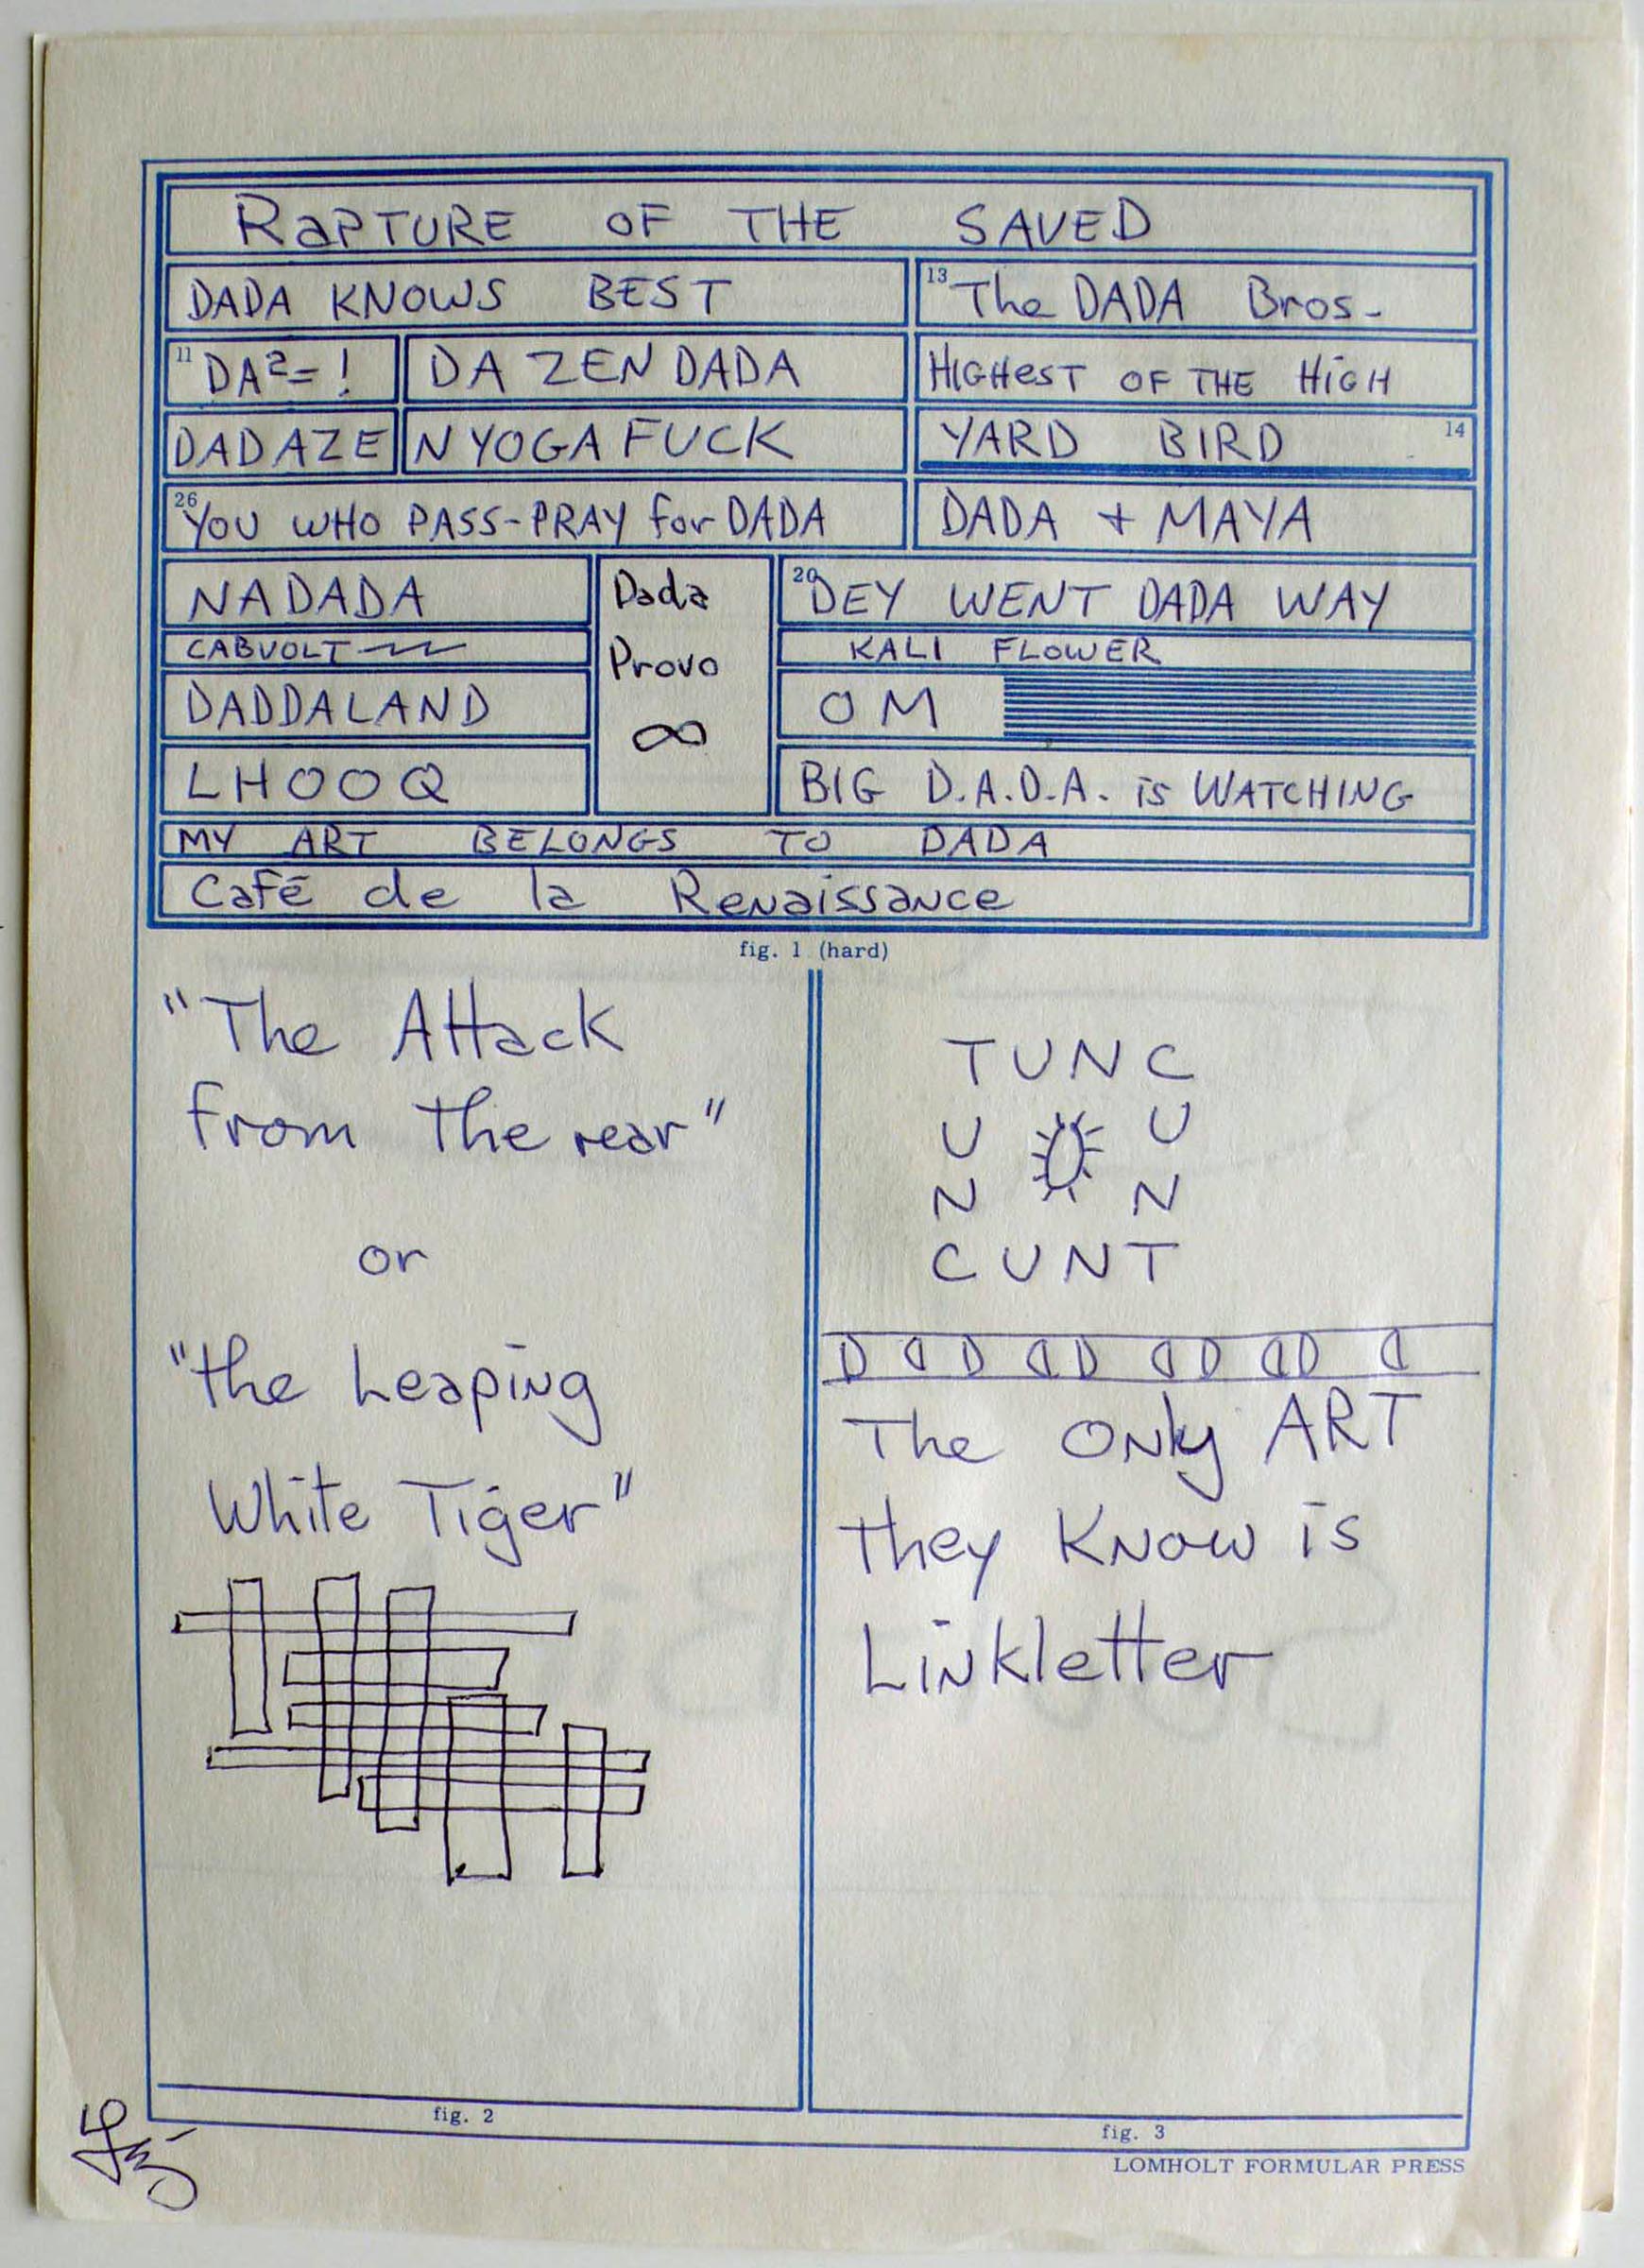 RaPTURE OF THE SAVED
DADA KNOWS BEST
13 The DADA Bros.
11 DA²=!
DA ZEN DADA
HIGHeST OF THE HiGH
DADAZE
N YOGA FUCK
YARD BIRD 14
26 YOU WHO PASS-PRAY for DADA
DADA + MAYA
NADADA
Dada
Provo
∞
20 DEY WENT DADA WAY
CABVOLT
KALI FLOWER
DADDALAND
OM
LHOOQ
BIG D.A.D.A. is WATCHING
MY ART BELONGS TO DADA
Café de la Renaissance
fig. 1 (hard)
"The Attack
from the rear"
or
"the Leaping
White Tiger"
fig. 2
TUNC
U U
N N
CUNT
D D D D D D D D D D
The Only ART
they Know is
Linkletter
fig. 3
LOMHOLT FORMULAR PRESS